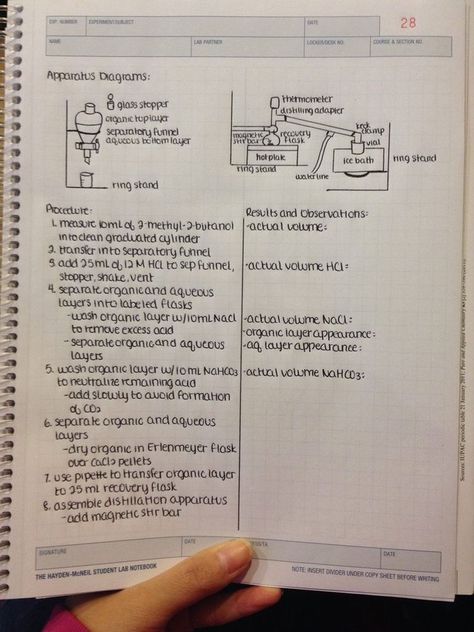 EXP. NUMBER EXPERIMENT/SUBJECT DATE 28
NAME LAB PARTNER LOCKER/DESK NO. COURSE & SECTION NO.
Apparatus Diagrams:
glass stopper
organic top layer
separatory funnel
aqueous bottom layer
ring stand
thermometer
distilling adapter
magnetic stir bar
recovery flask
keck clamp
vial
hot plate
ice bath
ring stand
ring stand
water line
Procedure:
1. measure 10mL of 2-methyl-2-butanol
into clean graduated cylinder
2. transfer into separatory funnel
3. add 25mL of 12 M HCl to sep funnel,
stopper, shake, vent
4. separate organic and aqueous
layers into labeled flasks
-wash organic layer w/10mL NaCl
to remove excess acid
-separate organic and aqueous
layers
5. wash organic layer w/10 mL NaHCO3
to neutralize remaining acid
-add slowly to avoid formation
of CO2
6. separate organic and aqueous
layers
-dry organic in Erlenmeyer flask
over CaCl2 pellets
7. use pipette to transfer organic layer
to 25 mL recovery flask
8. assemble distillation apparatus
-add magnetic stir bar
Results and Observations:
-actual volume:
-actual volume HCl:
-actual volume NaCl:
-organic layer appearance:
-aq layer appearance:
-actual volume NaHCO3:
SIGNATURE DATE DATE
THE HAYDEN-McNEIL STUDENT LAB NOTEBOOK NOTE: INSERT DIVIDER UNDER COPY SHEET BEFORE WRITING
Source: IUPAC periodic table 21 January 2011.